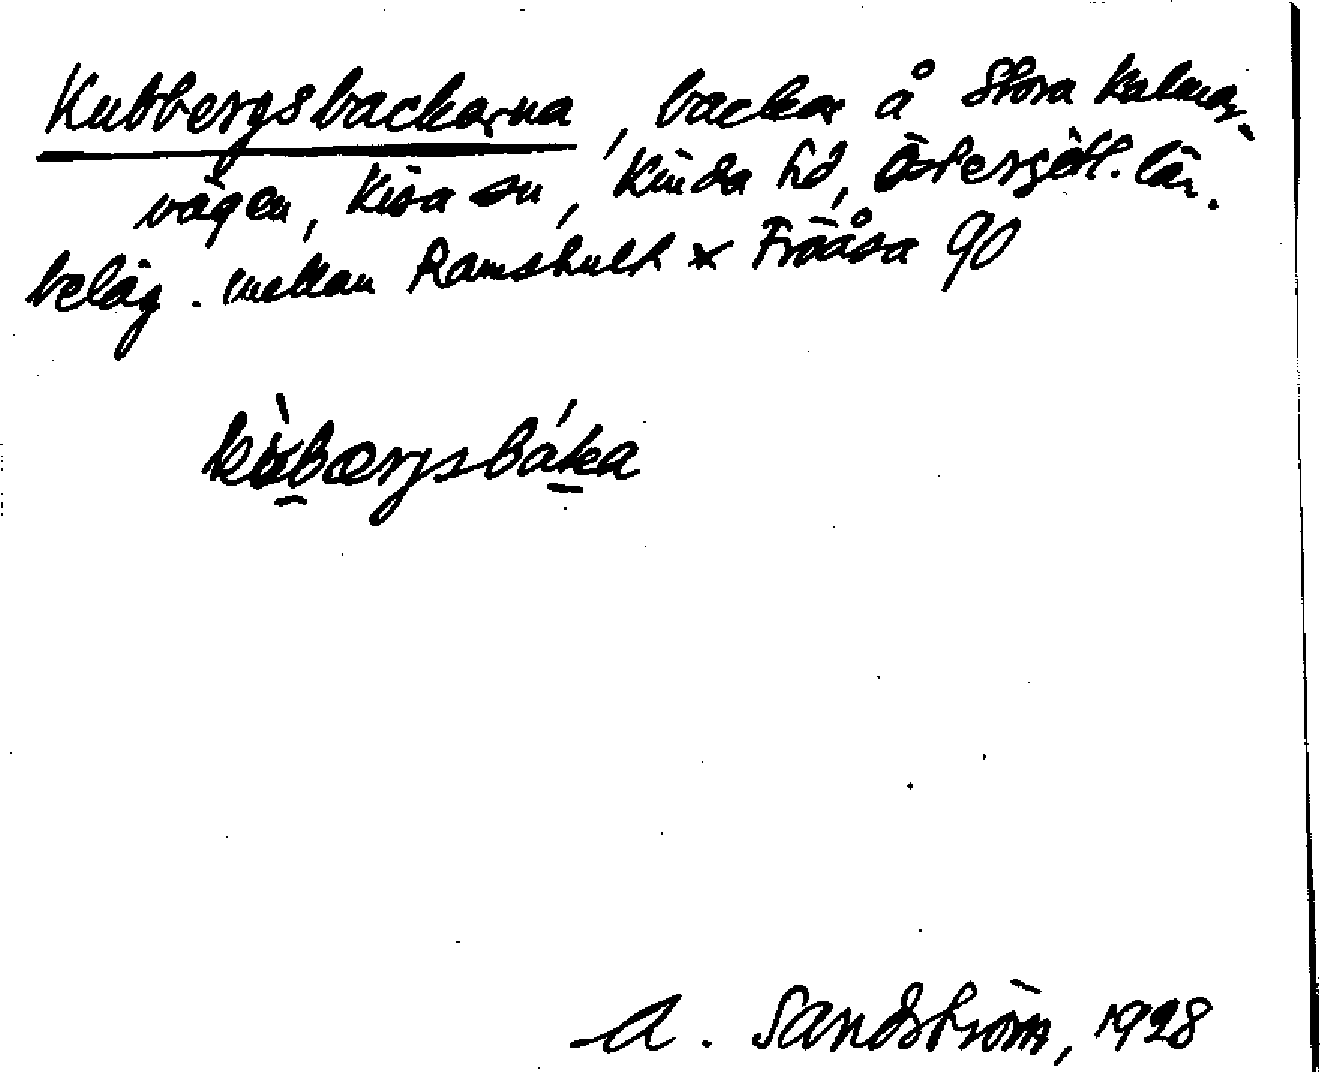 Kubbergsbackarna, backar å Stora Kalmar-
vägen, Kisa sn, Kinda hd, Östergötl. län.
beläg. mellan Ramshult × Frååsa 90
kùbærgsbáka
A. Sandström, 1928